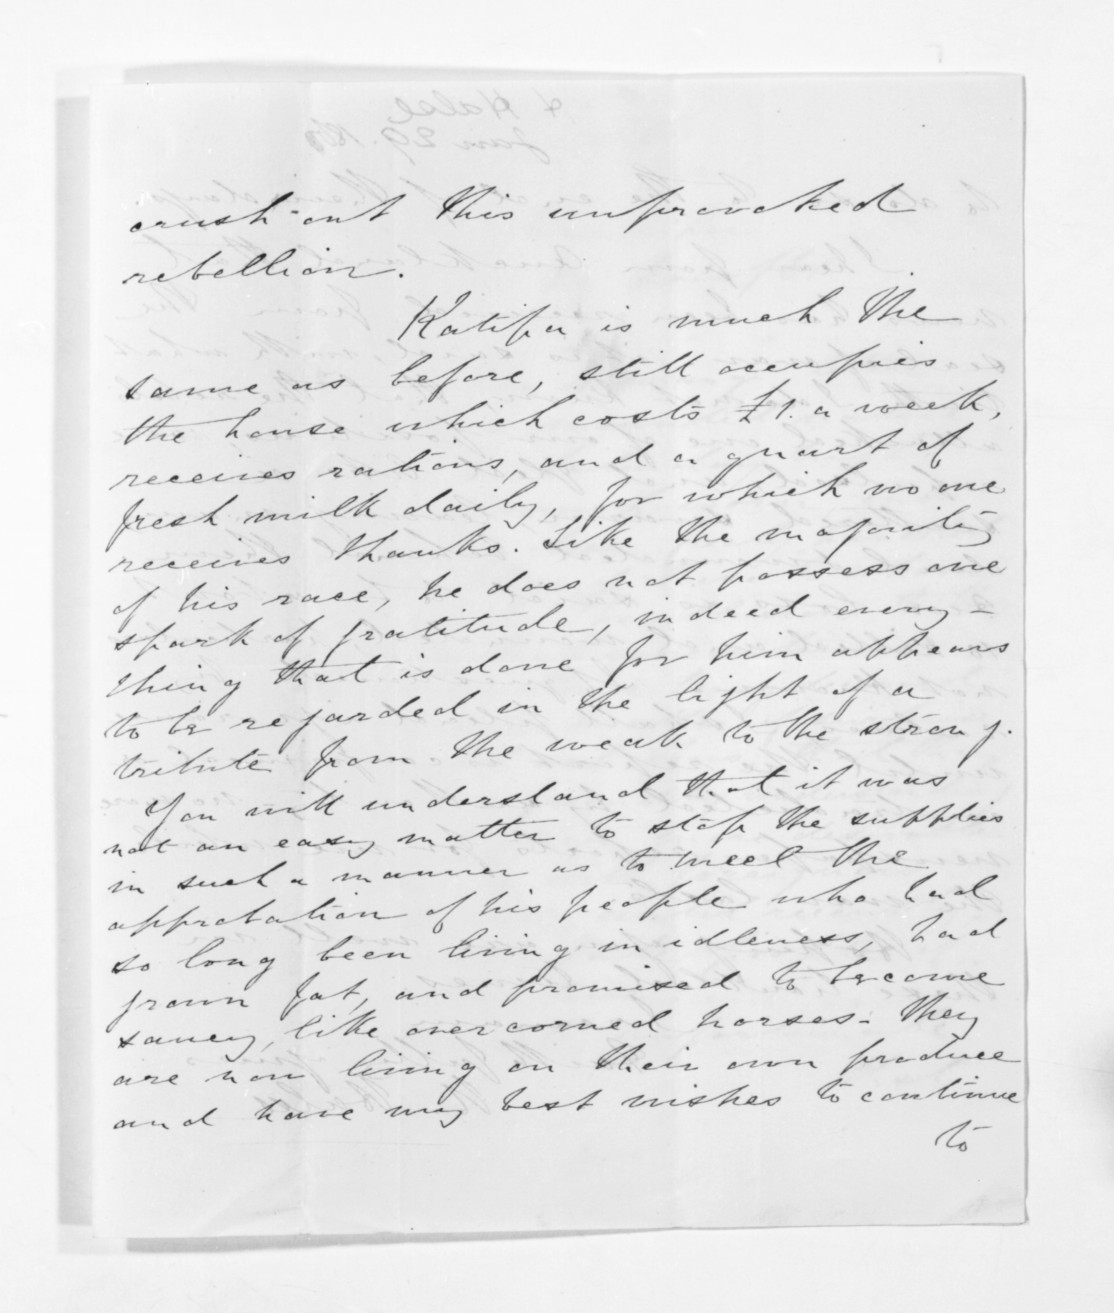 crush out this unprovoked
rebellion.
Katipa is much the
same as before, still occupies
the house which costs £1. a week,
receives rations, and a quart of
fresh milk daily, for which no one
receives thanks. Like the majority
of his race, he does not possess one
spark of gratitude, indeed every-
thing that is done for him appears
to be regarded in the light of a
tribute from the weak to the strong.
You will understand that it was
not an easy matter to stop the supplies
in such a manner as to meet the
approbation of his people who had
so long been living in idleness, had
grown fat, and promised to become
saucy, like overcorned horses - They
are now living on their own produce
and have my best wishes to continue
to